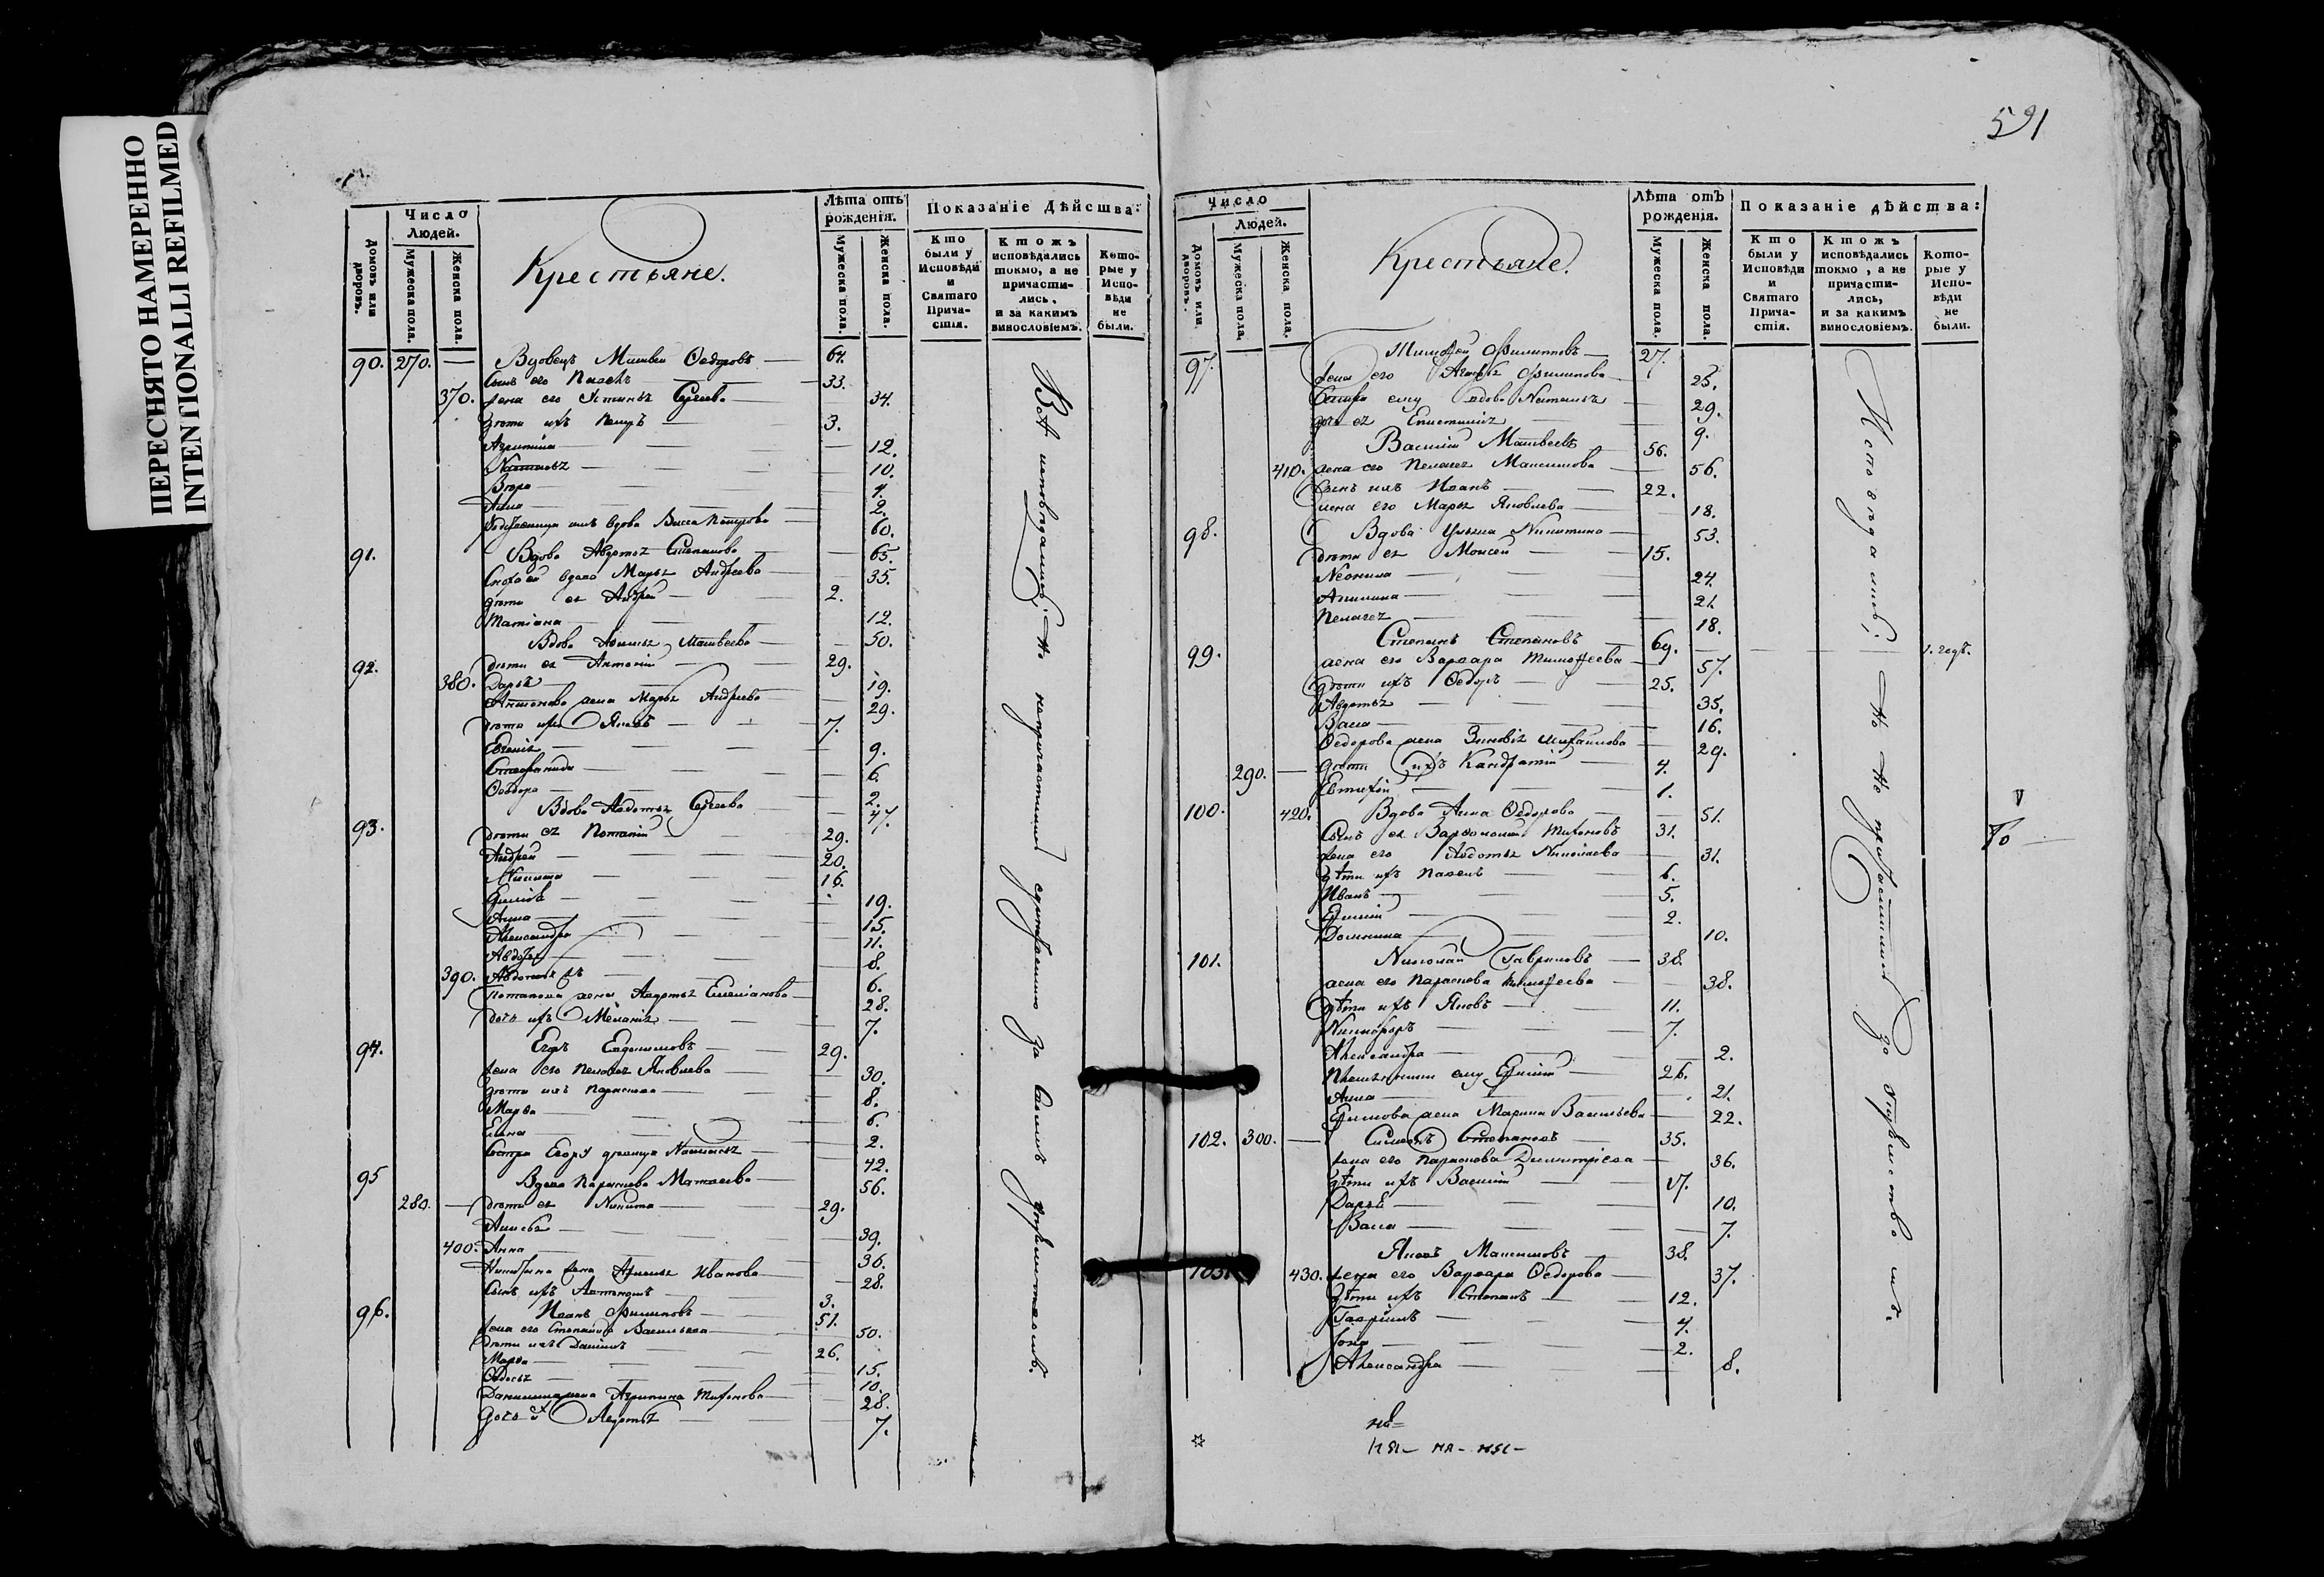 ПЕРЕСНЯТО НАМЕРЕННО
INTENTIONALLI REFILMED
591
Число
Людей.
Домовъ или дворовъ.
Мужеска пола.
Женска пола.
Крестьяне.
Лѣта отъ рожденія.
Мужеска пола.
Женска пола.
Показаніе Дѣйства:
Кто были у Исповѣди и Святаго Прича-стія.
Ктожъ исповѣдались токмо, а не причасти-лись, и за какимъ винословіемъ.
Кото-рые у Испо-вѣди не были.
90. 270. — Вдовецъ Матвей Ѳедоровъ — 64.
сынъ его Павелъ — 33.
370. жена его Устинья Сергеева — 34.
дѣти ихъ Петръ — 3.
Агрипина — 12.
Наталья — 10.
Вѣра — 4.
Анна — 2.
вдова Васса Петрова — 60.
91. Вдова Авдотья Степанова — 65.
вдова Марья Андреева — 35.
дѣти ея Андрей — 2.
Татіана — 12.
92. Вдова Матвеева — 50.
дѣти ея Антоній — 29.
380. Дарья — 19.
Антонова жена Марья Андреева — 29.
дѣти ихъ Яковъ — 7.
Евгенія — 9.
Стефанида — 6.
Ѳеодора — 2.
93. Вдова Авдотья Сергеева — 47.
дѣти ея Потапій — 29.
Андрей — 20.
Никита — 16.
— 19.
Анна — 15.
Александра — 11.
— 8.
390. Авдотья — 6.
Потапова жена Авдотья Емеліанова — 28.
дочь ихъ Меланія — 7.
94. Егоръ Евдокимовъ — 29.
жена его Пелагея Яковлева — 30.
дѣти ихъ Параскева — 8.
Марѳа — 6.
Елена — 2.
сестра Егору девица Наталья — 42.
95 Вдова Параскева Матвеева — 56.
280. — дѣти ея Никита — 29.
— 39.
400. Анна — 36.
Никитина жена Иванова — 28.
сынъ ихъ Антонъ — 3.
96. Иванъ Филиповъ — 51.
жена его Степанида Васильева — 50.
дѣти ихъ Данилъ — 26.
Марѳа — 15.
Ѳедосья — 10.
Данилина жена Агрипина Тихонова — 28.
дочь Авдотья — 7.
Всѣ исповѣдались, но непричастились за
Число
Людей.
Домовъ или дворовъ.
Мужеска пола.
Женска пола.
Крестьяне.
Лѣта отъ рожденія.
Мужеска пола.
Женска пола.
Показаніе дѣйства:
Кто были у Исповѣди и Святаго Прича-стія.
Ктожъ исповѣдались токмо, а не причасти-лись, и за какимъ винословіемъ.
Кото-рые у Испо-вѣди не были.
97. Тимоѳей Филиповъ — 27.
жена его Филипова — 25.
сестра ему вдова Наталья — 29.
дочь ея Епистимія — 9.
Василій Матвеевъ — 56.
410. жена его Пелагея Максимова — 56.
сынъ ихъ Иванъ — 22.
жена его Марья Яковлева — 18.
98. Вдова Ульяна Никитина — 53.
дѣти ея Моисей — 15.
Неонила — 24.
Акилина — 21.
Пелагея — 18.
99. Степанъ Степановъ — 69. — 1. годъ.
жена его Варвара Тимоѳеева — 57.
дѣти ихъ Ѳедоръ — 25.
Авдотья — 35.
Васса — 16.
Ѳедорова жена Зиновія Михайлова — 29.
290. — дѣти ихъ Кандратій — 4.
Евтихій — 1.
100. 420. Вдова Анна Ѳедорова — 51.
сынъ ея Варѳоломей Тихоновъ 31.
жена его Авдотья Николаева — 31.
дѣти ихъ Павелъ — 6.
Иванъ — 5.
Ефимій — 2.
Домнина — 10.
101. Николай Гавриловъ — 38.
жена его Параскова Тимоѳеева — 38.
дѣти ихъ Яковъ — 11.
Никифоръ — 7.
Александра — 2.
ему Ефимій — 26.
Анна — 21.
Ефимова жена Марина Васильева — 22.
102. 300. — Симеонъ Степановъ — 35.
жена его Параскова Дмитріева — 36.
дѣти ихъ Василій — 17.
Дарья — 10.
Васса — 7.
103. Яковъ Максимовъ — 38.
430. жена его Варвара Ѳедорова — 37.
дѣти ихъ Степанъ — 12.
Гаврилъ — 4.
Іона — 2.
Александра — 8.
Исповѣдались, но не причастились за